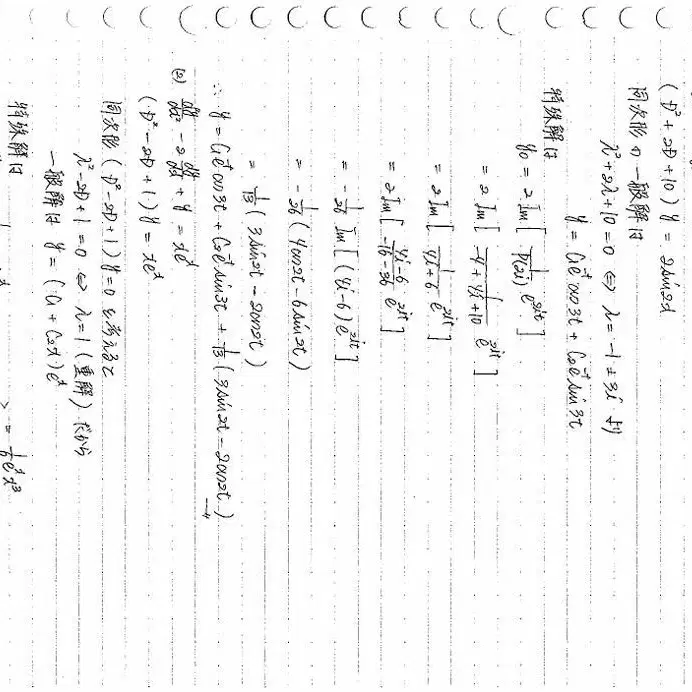 (D²+2D+10)y = 2sin2t
同次形の一般解は
λ²+2λ+10=0 ⇔ λ=-1±3i より
y = C₁e⁻ᵗcos3t + C₂e⁻ᵗsin3t
特殊解は
y₀ = 2Im[ 1/φ(2i) e^{2it} ]
= 2Im[ 1/(-4+4i+10) e^{2it} ]
= 2Im[ 1/(4i+6) e^{2it} ]
= 2Im[ (4i-6)/(-16-36) e^{2it} ]
= -1/26 Im[ (4i-6) e^{2it} ]
= -1/26 (4cos2t - 6sin2t)
= 1/13 (3sin2t - 2cos2t)
∴ y = C₁e⁻ᵗcos3t + C₂e⁻ᵗsin3t + 1/13 (3sin2t - 2cos2t)
(2) d²y/dx² - 2 dy/dx + y = xeˣ
(D²-2D+1)y = xeˣ
同次形 (D²-2D+1)y=0 を考えると
λ²-2D+1=0 ⇔ λ=1 (重解) だから
一般解は y = (C₁+C₂x)eˣ
特殊解は
= 1/6 eˣx³